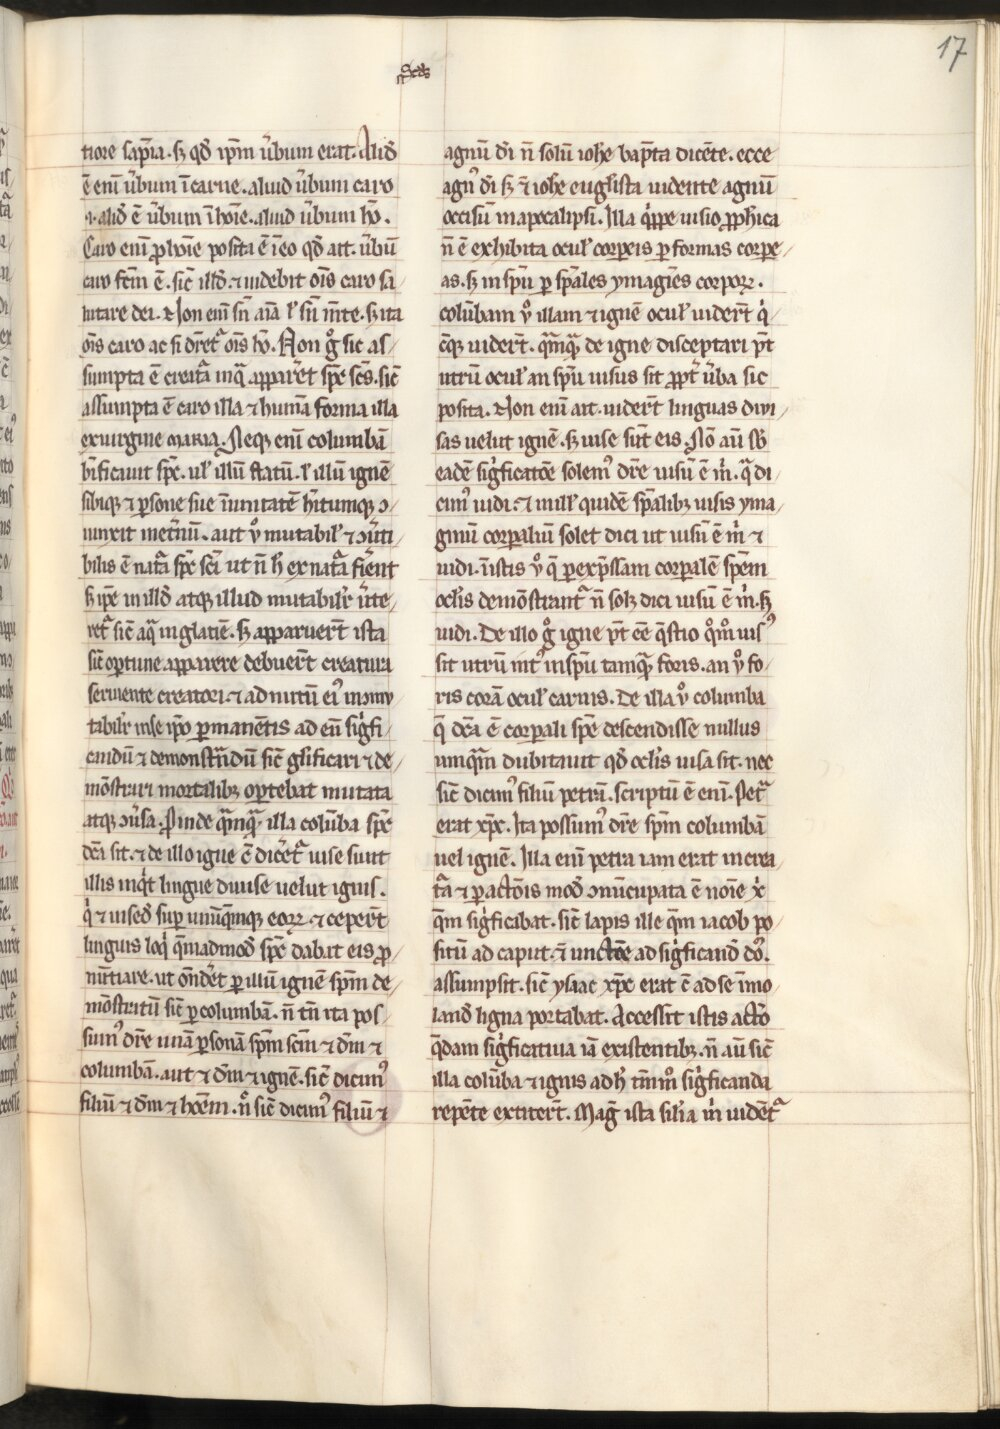 17
Scds
tiore sap̄ia. sꝫ qđ ip̄m ũbum erat. Aliđ
ē eni ũbum ī carne. aliud ũbum caro
.i. aliđ ē ũbum ī hoīe. aliud ũbum hō.
Caro eni ꝓ hoīe posita ē ī eo qđ ait. ũbū
caro fc̄m ē. sic̄ illđ. ⁊ uidebit oīs caro sa/
lutare dei. Non eni sn̄ aīa ł sn̄ m̄te. sꝫ ita
oīs caro ac si dr̄etᷣ oīs hō. Non gͦ sic as/
sumpta ē creat̃a inqᵃ apparet̄ sp̄c sc̄s. sic̄
assumpta ē caro illa ⁊ humāa forma illa
ex uirgine maria. Neqꝫ eni columbā
bīficauit sp̄c. ul̕ illū flatū. ł illū ignē
sibiqꝫ ⁊ ꝑsone sue ī unitatē h̄itumqꝫ ꝯ/
iunxit inet̄nū. aut uͦ mutabil̕ ⁊ ꝯũti/
bilis ē nat̃a sp̄c sc̄i ut n̄ h̄ ex nat̃a fier̄ent
sꝫ ip̄e in illđ atqꝫ illud mutabilr̕ ũte/
ret̕ sic̄ aqᵃ in glatiē. sꝫ apparuer̄t ista
sic̄ oꝑtune apparere debuer̄t creatura
seruiente creatori. ⁊ ad nutū ei᷒ incōmu
tabilr̕ in se ip̄o ꝑmanētis ad eū sigͥfi/
candū ⁊ demonst̃ndū sic̄ gl̄ificari ⁊ de/
mōstrari mortalibꝫ oꝑtebat mutata
atqꝫ ꝯũsa. Ꝓinde qᵃm̄qᵃ illa colūba sp̄c
dc̄a sit. ⁊ de illo igne c̄ dic̄et̃ uise sunt
illis inqͥt lingue diuise uelut ignis.
qͥ ⁊ inseđ suꝑ unūqēmqꝫ eoꝝ. ⁊ ceper̄t
linguis loqͥ qēmadmođ sp̄c dabat eis ꝓ/
nūtiare. ut on̄dēt ꝑ illū ignē sp̄m de/
mōstratū sic̄ ꝑ columbā. n̄ tn̄ ita pos/
sum᷒ dr̄e unā ꝑsonā sp̄m sc̄m ⁊ dm̄ ⁊
columbā. aut ⁊ dm̄ ⁊ ignē. sic̄ dicim᷒
filiū ⁊ dm̄ ⁊ hoēm. nͦ sic̄ dicim᷒ filiū ⁊
agnū di̅ n̄ solū iohe bap̄ta dicēte. ecce
agn᷒ di̅ sꝫ ⁊ iohe eugl̄ista uidente agnū
occisū in apocalipsi. Illa qͥppe uisio ꝓphica
n̄ ē exhibita ocul̕ corꝑeis ꝑ formas corꝑe/
as. sꝫ in sp̄u ꝑ sp̄ales ymagīes corpoꝝ.
colūbam uͦ illam ⁊ ignē ocul̕ uider̄t qͥ
cūqꝫ uider̄t. qᵃm̄qᵃ de igne disceptari p̄t
utrū ocul̕ an sp̄u uisus sit ꝓpt̕ ũba sic
posita. Non eni ait. uider̄t linguas diui/
sas uelut ignē. sꝫ uise sūt eis. Nō aū sb̕
eadē sigͥficatōe solem᷒ dr̄e uisū ē m̕. qᵃ di
cim᷒ uidi. ⁊ in ill̕ quidē sp̄alibꝫ uisis yma/
ginū corꝑaliū solet dici ut uisū ē m̕ ⁊
uidi. in istis uͦ q̄ ꝑ exp̄ssam corꝑalē sp̄em
oclis demōstrant̕ n̄ solꝫ dici uisū ē m̕. sꝫ
uidi. De illo gͦ igne p̄t eē qᵒstio qͦmͦ uis᷒
sit utrū int᷒ in sp̄u tamqᵃ foris. an uͦ fo/
ris corā ocul̕ carnis. De illa uͦ columba
q̄ dc̄a ē corꝑali sp̄e descendisse nullus
umqᵃm dubitauit qđ oclis uisa sit. nec
sic̄ dicim᷒ filiū petrā. scriptū ē eni. Petᵃ
erat xp̄c. Ita possum᷒ dr̄e sp̄m columbā
uel ignē. Illa eni petra iam erat in crea/
t̃a ⁊ ꝑ actōis mođ ꝯnūcupata ē noīe x̕
qēm sigͥficabat. sic̄ lapis ille qēm iacob po/
situ ad caput. ⁊ unctōe ad sigͥficanđ dōͦ.
assumpsit. sic̄ ysaac xp̄c erat c̄ ad se īmo/
lanđ ligna portabat. Accessit istis actͦ
q̄dam sigͥficatiua iā existentibꝫ. n̄ aū sic̄
illa colūba ⁊ ignis ad h̄ tm̄mͦ sigͥficanda
repēte extiter̄t. Mag̕ ista sil̄ia m̕ uidēt̕